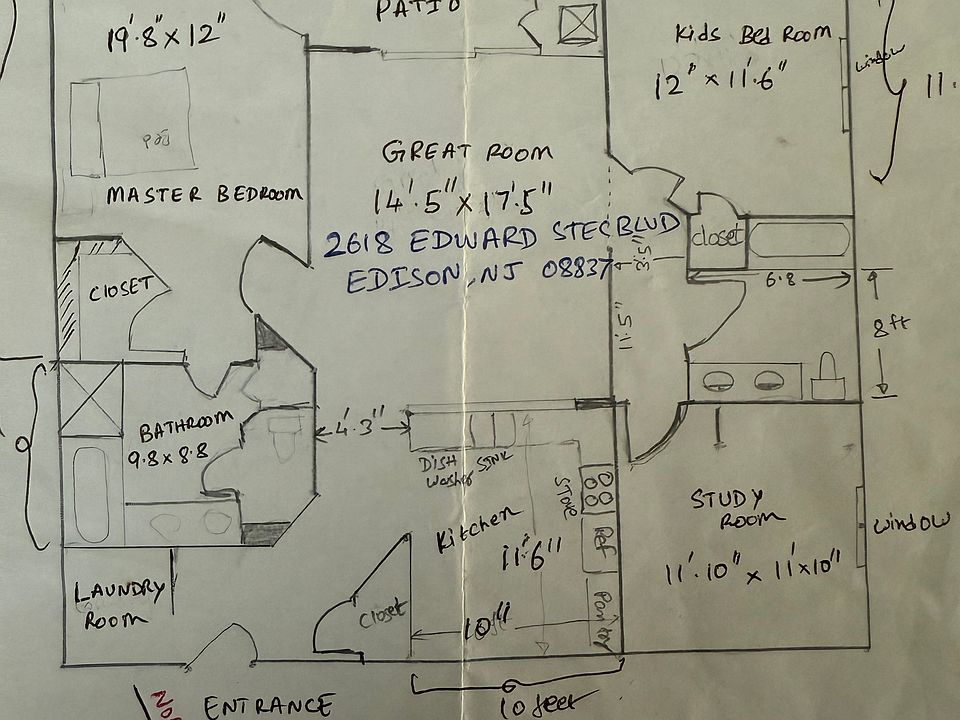 PATIO
19'.8" x 12"
Kids Bed Room
window
12" x 11'.6"
11.
GREAT ROOM
MASTER BEDROOM
14'.5" x 17'.5"
2618 EDWARD STEC BLVD
EDISON, NJ 08837
closet
3'.5"
CLOSET
6.8
9
8 ft
11'.5"
BATHROOM
9.8 x 8.8
9
4'.3"
DISH
washer
SINK
STOVE
Kitchen
11'.6"
Ref
Pantry
STUDY
ROOM
window
11'.10" x 11'x10"
LAUNDRY
ROOM
closet
10"
ENTRANCE
10 feet